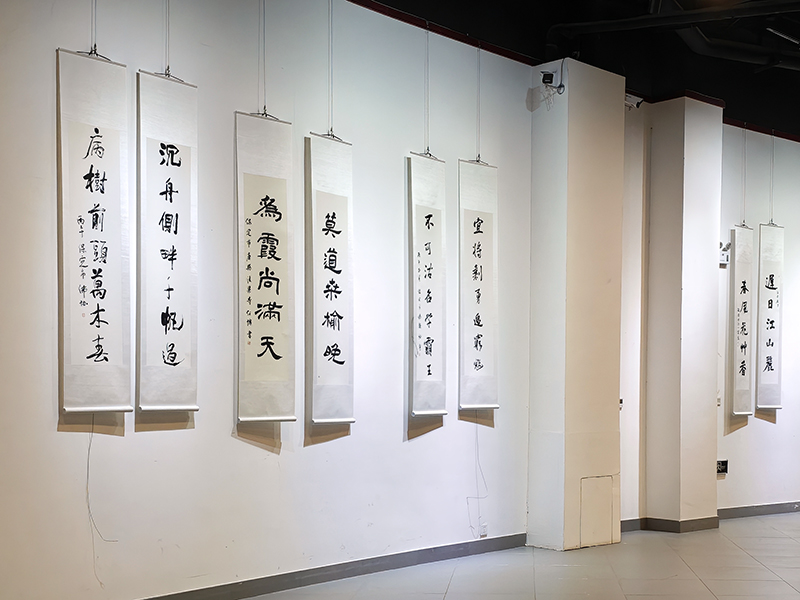 遲日江山麗
春風花艸香
宜将剩勇追窮寇
不可沽名学霸王
莫道桑榆晚
為霞尚滿天
沉舟側畔千帆過
病樹前頭萬木春